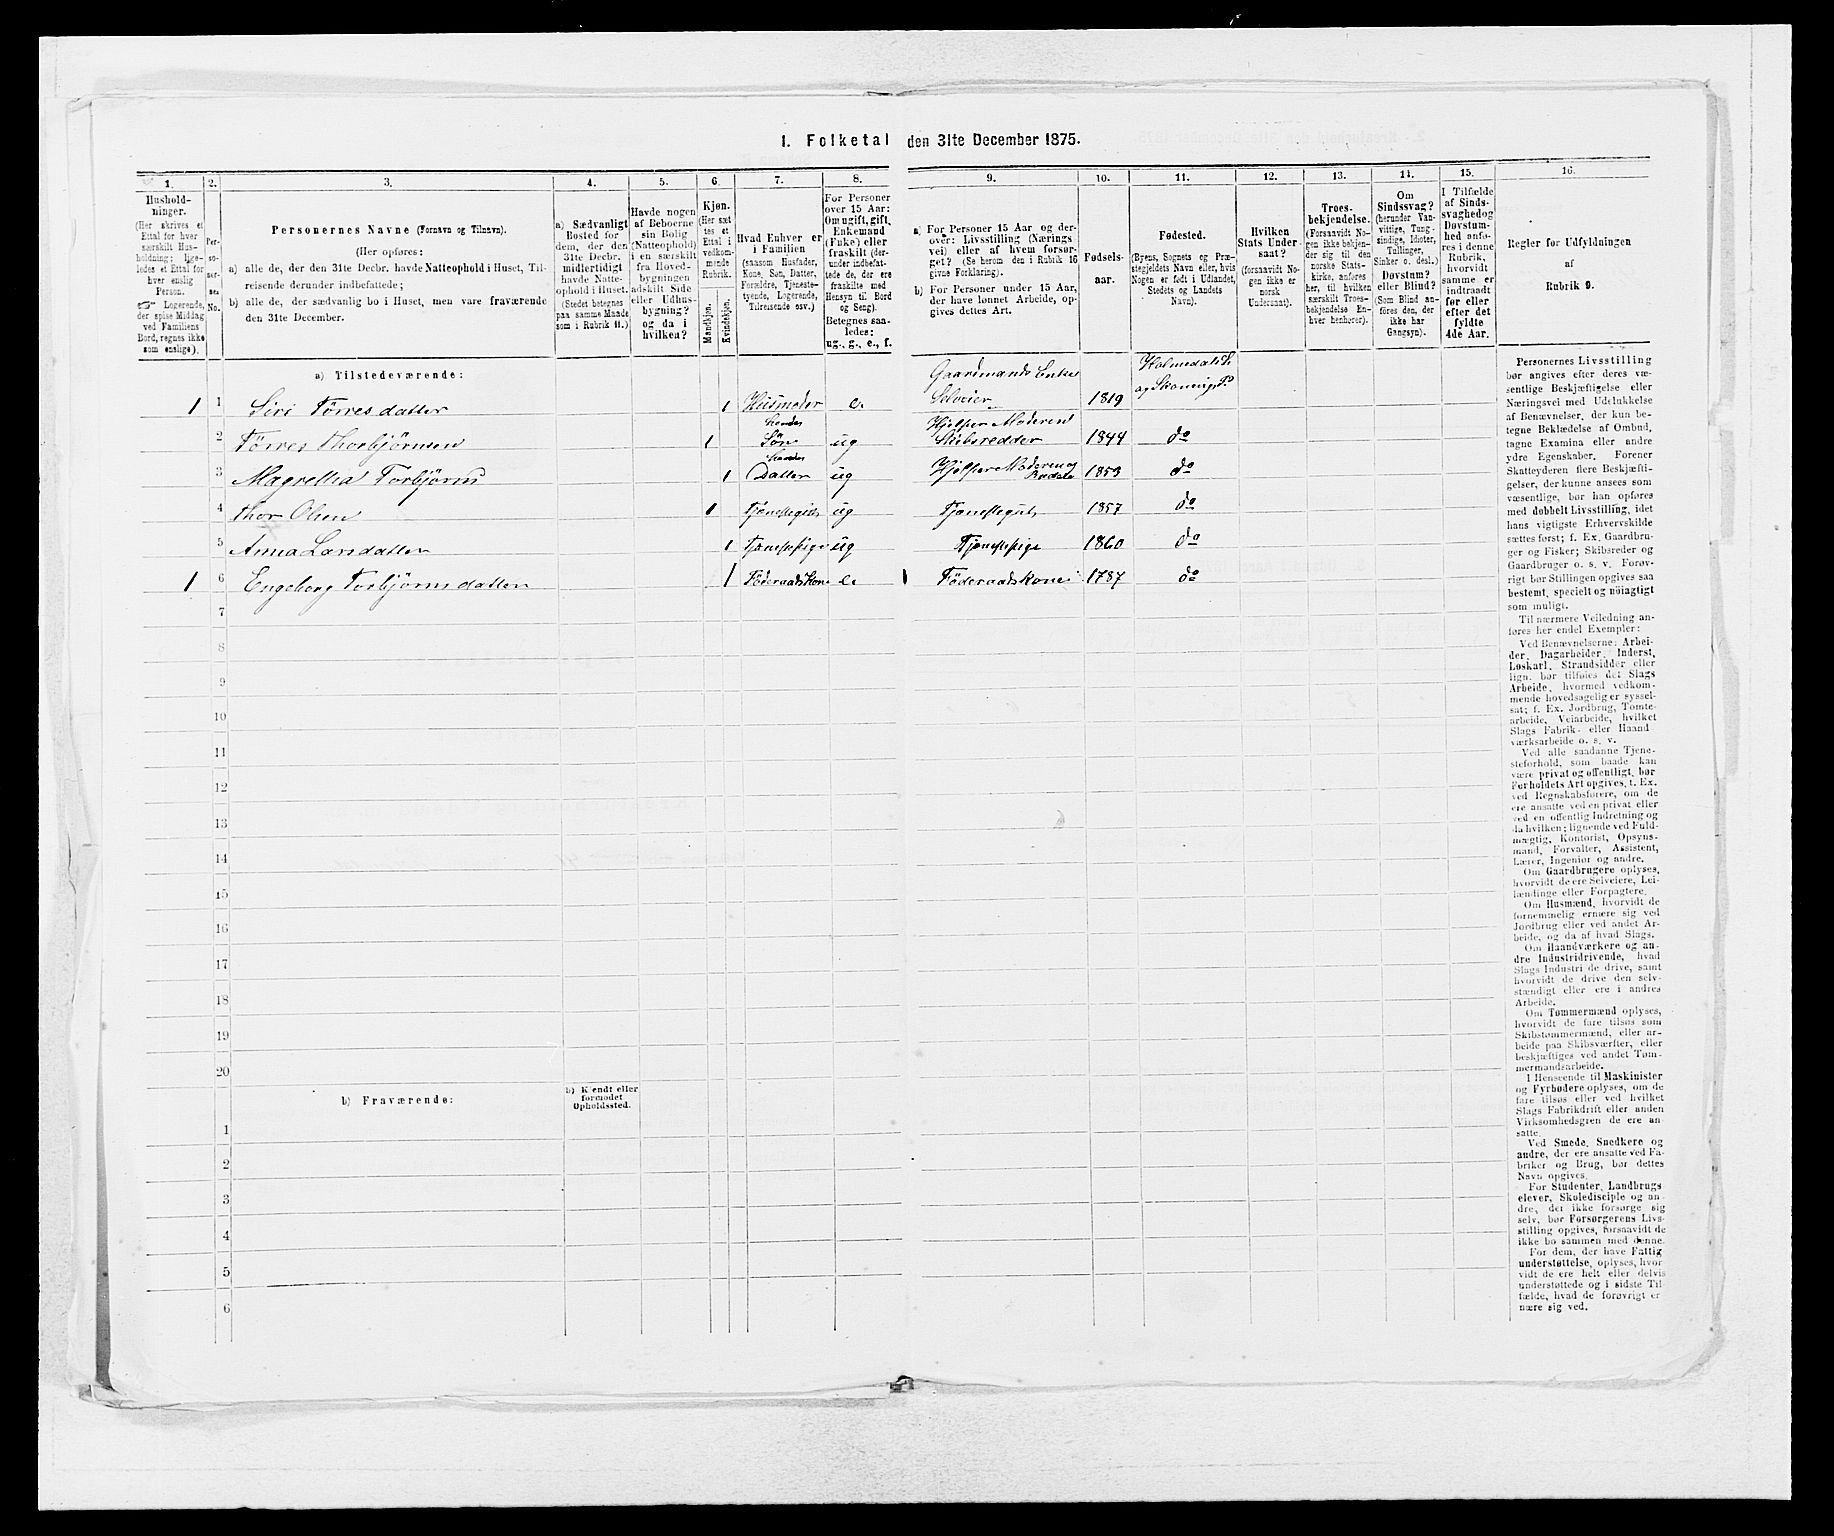 1. Folketal den 31te December 1875.
1. 2. 3. 4. 5. 6. 7. 8. 9. 10. 11. 12. 13. 14. 15. 16.
Hushold-
ninger.
(Her skrives et
Ettal for hver
særskilt Hus-
holdning; lige-
ledes et Ettal for
hver enslig
Person.
☞ Logerende,
der spise Middag
ved Familiens
Bord, regnes ikke
som enslige).
Per-
so-
ner-
nes
No.
Personernes Navne (Fornavn og Tilnavn).
(Her opføres:
a) alle de, der den 31te Decbr. havde Natteophold i Huset, Til-
reisende derunder indbefattede;
b) alle de, der sædvanlig bo i Huset, men vare fraværende
den 31te December.
a) Sædvanligt
Bosted for
dem, der den
31te Decbr.
midlertidigt
havde Natte-
ophold i Huset.
(Stedet betegnes
paa samme Maade
som i Rubrik 11.)
Havde nogen
af Beboerne
sin Bolig
(Natteophold)
i en særskilt
fra Hoved-
bygningen
adskilt Side
eller Udhus-
bygning?
og da i
hvilken?
Kjøn.
(Her sæt
tes et
Ettal i
vedkom-
mende
Rubrik.
Mandkjøn.
Kvindekjøn.
Hvad Enhver er
i Familien
(saasom Husfader,
Kone, Søn, Datter,
Forældre, Tjeneste-
tyende, Logerende,
Tilreisende osv.)
For Personer
over 15 Aar:
Om ugift, gift,
Enkemand
(Enke) eller
fraskilt (der-
under indbefat-
tede de, der ere
fraskilte med
Hensyn til Bord
og Seng).
Betegnes saa-
ledes:
ug., g., e., f.
a) For Personer 15 Aar og der-
over: Livsstilling (Nærings
vei) eller af hvem forsør-
get? (Se herom den i Rubrik 16
givne Forklaring).
b) For Personer under 15 Aar,
der have lønnet Arbeide, op-
gives dettes Art.
Fødsels-
aar.
Fødested.
(Byens, Sognets og Præ-
stegjeldets Navn eller, hvis
Nogen er født i Udlandet,
Stedets og Landets
Navn).
Hvilken
Stats Under-
saat?
(forsaavidt No-
gen ikke er
norsk
Undersaat).
Troes-
bekjendelse.
(Forsaavidt No-
gen ikke bekjen-
der sig til den
norske Stats-
kirke, anføres
her, til hvilken
særskilt Troes-
bekjendelse En-
hver henhører).
Om
Sindssvag?
(herunder Van-
vittige, Tung-
sindige, Idioter,
Tullinger,
Sinker o. desl.).
Døvstum?
eller Blind?
(Som Blind an-
føres den, der
ikke har
Gangsyn).
I Tilfælde
af Sinds-
svaghed og
Døvstum-
hed anfø-
res i denne
Rubrik,
hvorvidt
samme er
indtraadt
før eller
efter det
fyldte
4de Aar.
Regler for Udfyldningen
af
Rubrik 9.
a) Tilstedeværende:
1 1 Siri Tørresdatter 1 Husmoder e. Gaardmands Enke Selveier 1819 Holmedals S. og Skaanevigs P.
2 Tørres Thorbjørnsen 1 hendes Søn ug Hjelper Moderen Skibsredder 1844 do
3 Magretha Torbjørns 1 hendes Datter ug Hjelper Moderen og 1853 do
4 Thor Olsen 1 Tjenestegut ug Tjenestegut 1857 do
5 Anna Larsdatter 1 Tjenestepige ug Tjenestepige 1860 do
1 6 Engeborg Torbjørnsdatter 1 Føderaadskone e 1 Føderaadskone 1787 do
7
8
9
10
11
12
13
14
15
16
17
18
19
20
b) Fraværende:
b) Kjendt eller
formodet
Opholdssted.
1
2
3
4
5
6
Personernes Livsstilling
bør angives efter deres væ-
sentlige Beskjæftigelse eller
Næringsvei med Udelukkelse
af Benævnelser, der kun be-
tegne Beklædelse af Ombud,
tagne Examina eller andre
ydre Egenskaber. Forener
Skatteyderen flere Beskjæfti-
gelser, der kunne ansees som
væsentlige, bør han opføres
med dobbelt Livsstilling, idet
hans vigtigste Erhvervskilde
sættes først; f. Ex. Gaardbru-
ger og Fisker; Skibsreder og
Gaardbruger o. s. v. Forøv-
rigt bør Stillingen opgives saa
bestemt, specielt og nøiagtigt
som muligt.
Til nærmere Veiledning an-
føres her endel Exempler:
Ved Benævnelserne: Arbei-
der, Dagarbeider, Inderst,
Løskarl, Strandsidder eller
lign. bør tilføies det Slags
Arbeide, hvormed vedkom-
mende hovedsagelig er syssel-
sat; f. Ex. Jordbrug, Tomte-
arbeide, Veiarbeide, hvilket
Slags Fabrik- eller Haand
værksarbeide o. s. v.
Ved alle saadanne Tjene-
steforhold, som baade kan
være privat og offentligt, bør
Forholdets Art opgives, t. Ex.
ved Regnskabsførere, om de
ere ansatte ved en privat eller
ved en offentlig Indretning og
da hvilken; lignende ved Fuld-
mægtig, Kontorist, Opsyns-
mand, Forvalter, Assistent,
Lærer, Ingeniør og andre.
Om Gaardbrugere oplyses,
hvorvidt de ere Selveiere, Lei-
lændinge eller Forpagtere.
Om Husmænd, hvorvidt de
fornemmelig ernære sig ved
Jordbrug eller ved andet Ar-
beide, og da af hvad Slags.
Om Haandværkere og an-
dre Industridrivende, hvad
Slags Industri de drive, samt
hvorvidt de drive den selv-
stændigt eller ere i andres
Arbeide.
Om Tømmermænd oplyses,
hvorvidt de fare tilsøs som
Skibstømmermænd, eller ar-
beide paa Skibsværfter, eller
beskjæftiges ved andet Tøm-
mermandsarbeide.
I Henseende til Maskinister
og Fyrbødere oplyses, om de
fare tilsøs eller ved hvilket
Slags Fabrikdrift eller anden
Virksomhedsgren de ere an-
satte.
Ved Smede, Snedkere og
andre, der ere ansatte ved Fa-
briker og Brug, bør dettes
Navn opgives.
For Studenter, Landbrugs
elever, Skoledisciple og an-
dre, der ikke forsørge sig
selv, bør Forsørgerens Livs-
stilling opgives, forsaavidt de
ikke bo sammen med denne.
For dem, der have Fattig
understøttelse, oplyses, hvor
vidt de ere helt eller delvis
understøttede og i sidste Til-
fælde, hvad de forøvrigt er
nære sig ved.